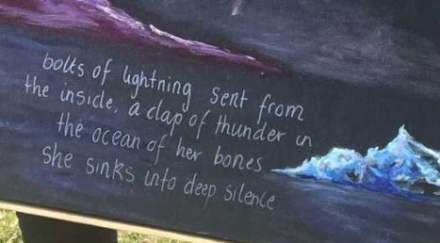 bolts of lightning sent from
the inside. a clap of thunder in
the ocean of her bones
she sinks into deep silence